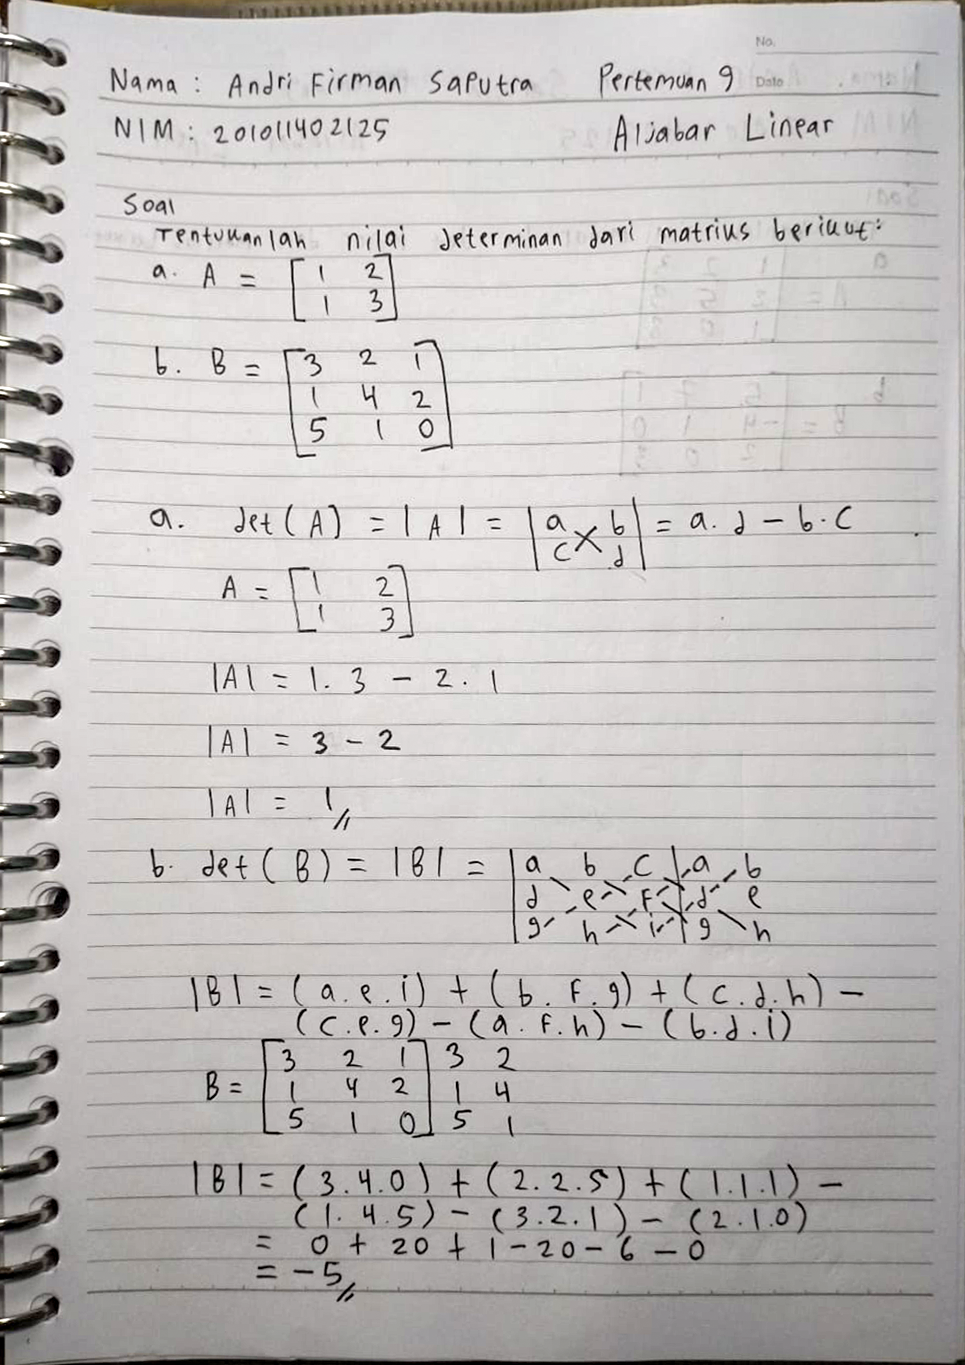 No.
Nama : Andri Firman Saputra Pertemuan 9 Date
NIM : 201011402125 Aljabar Linear
Soal
Tentukanlah nilai determinan dari matriks berikut:
a. A = [ 1 2
1 3 ]
b. B = [ 3 2 1
1 4 2
5 1 0 ]
a. det (A) = |A| = | a b | = a.d - b.c
c d
A = [ 1 2
1 3 ]
|A| = 1.3 - 2.1
|A| = 3 - 2
|A| = 1//
b. det (B) = |B| = | a b c | a b
d e f | d e
g h i | g h
|B| = (a.e.i) + (b.f.g) + (c.d.h) -
(c.e.g) - (a.f.h) - (b.d.i)
B = [ 3 2 1 ] 3 2
1 4 2 1 4
5 1 0 5 1
|B| = (3.4.0) + (2.2.5) + (1.1.1) -
(1.4.5) - (3.2.1) - (2.1.0)
= 0 + 20 + 1 - 20 - 6 - 0
= -5//